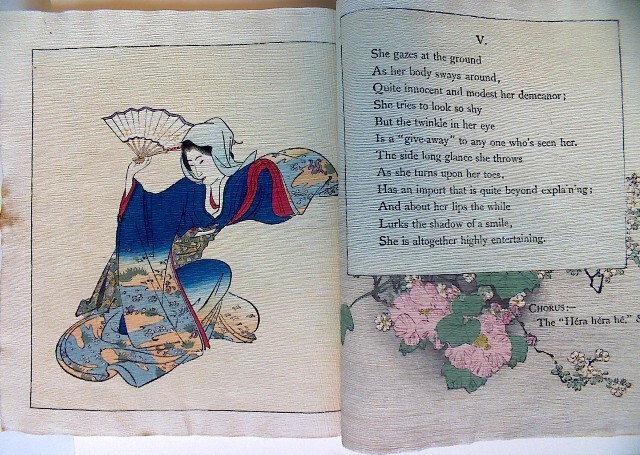 V.
She gazes at the ground
As her body sways around,
Quite innocent and modest her demeanor;
She tries to look so shy
But the twinkle in her eye
Is a "give-away" to any one who's seen her.
The side long glance she throws
As she turns upon her toes,
Has an import that is quite beyond expla'n'ng;
And about her lips the while
Lurks the shadow of a smile,
She is altogether highly entertaining.
CHORUS:—
The "Héra héra hé,"